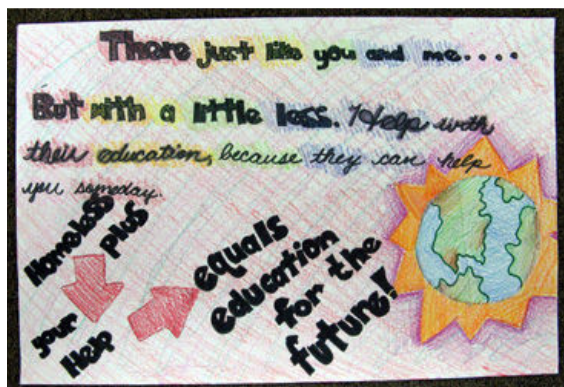 There just like you and me....
But with a little less. Help with
their education, because they can help
you someday.
Homeless
plus
your
Help
equals
education
for the
future!